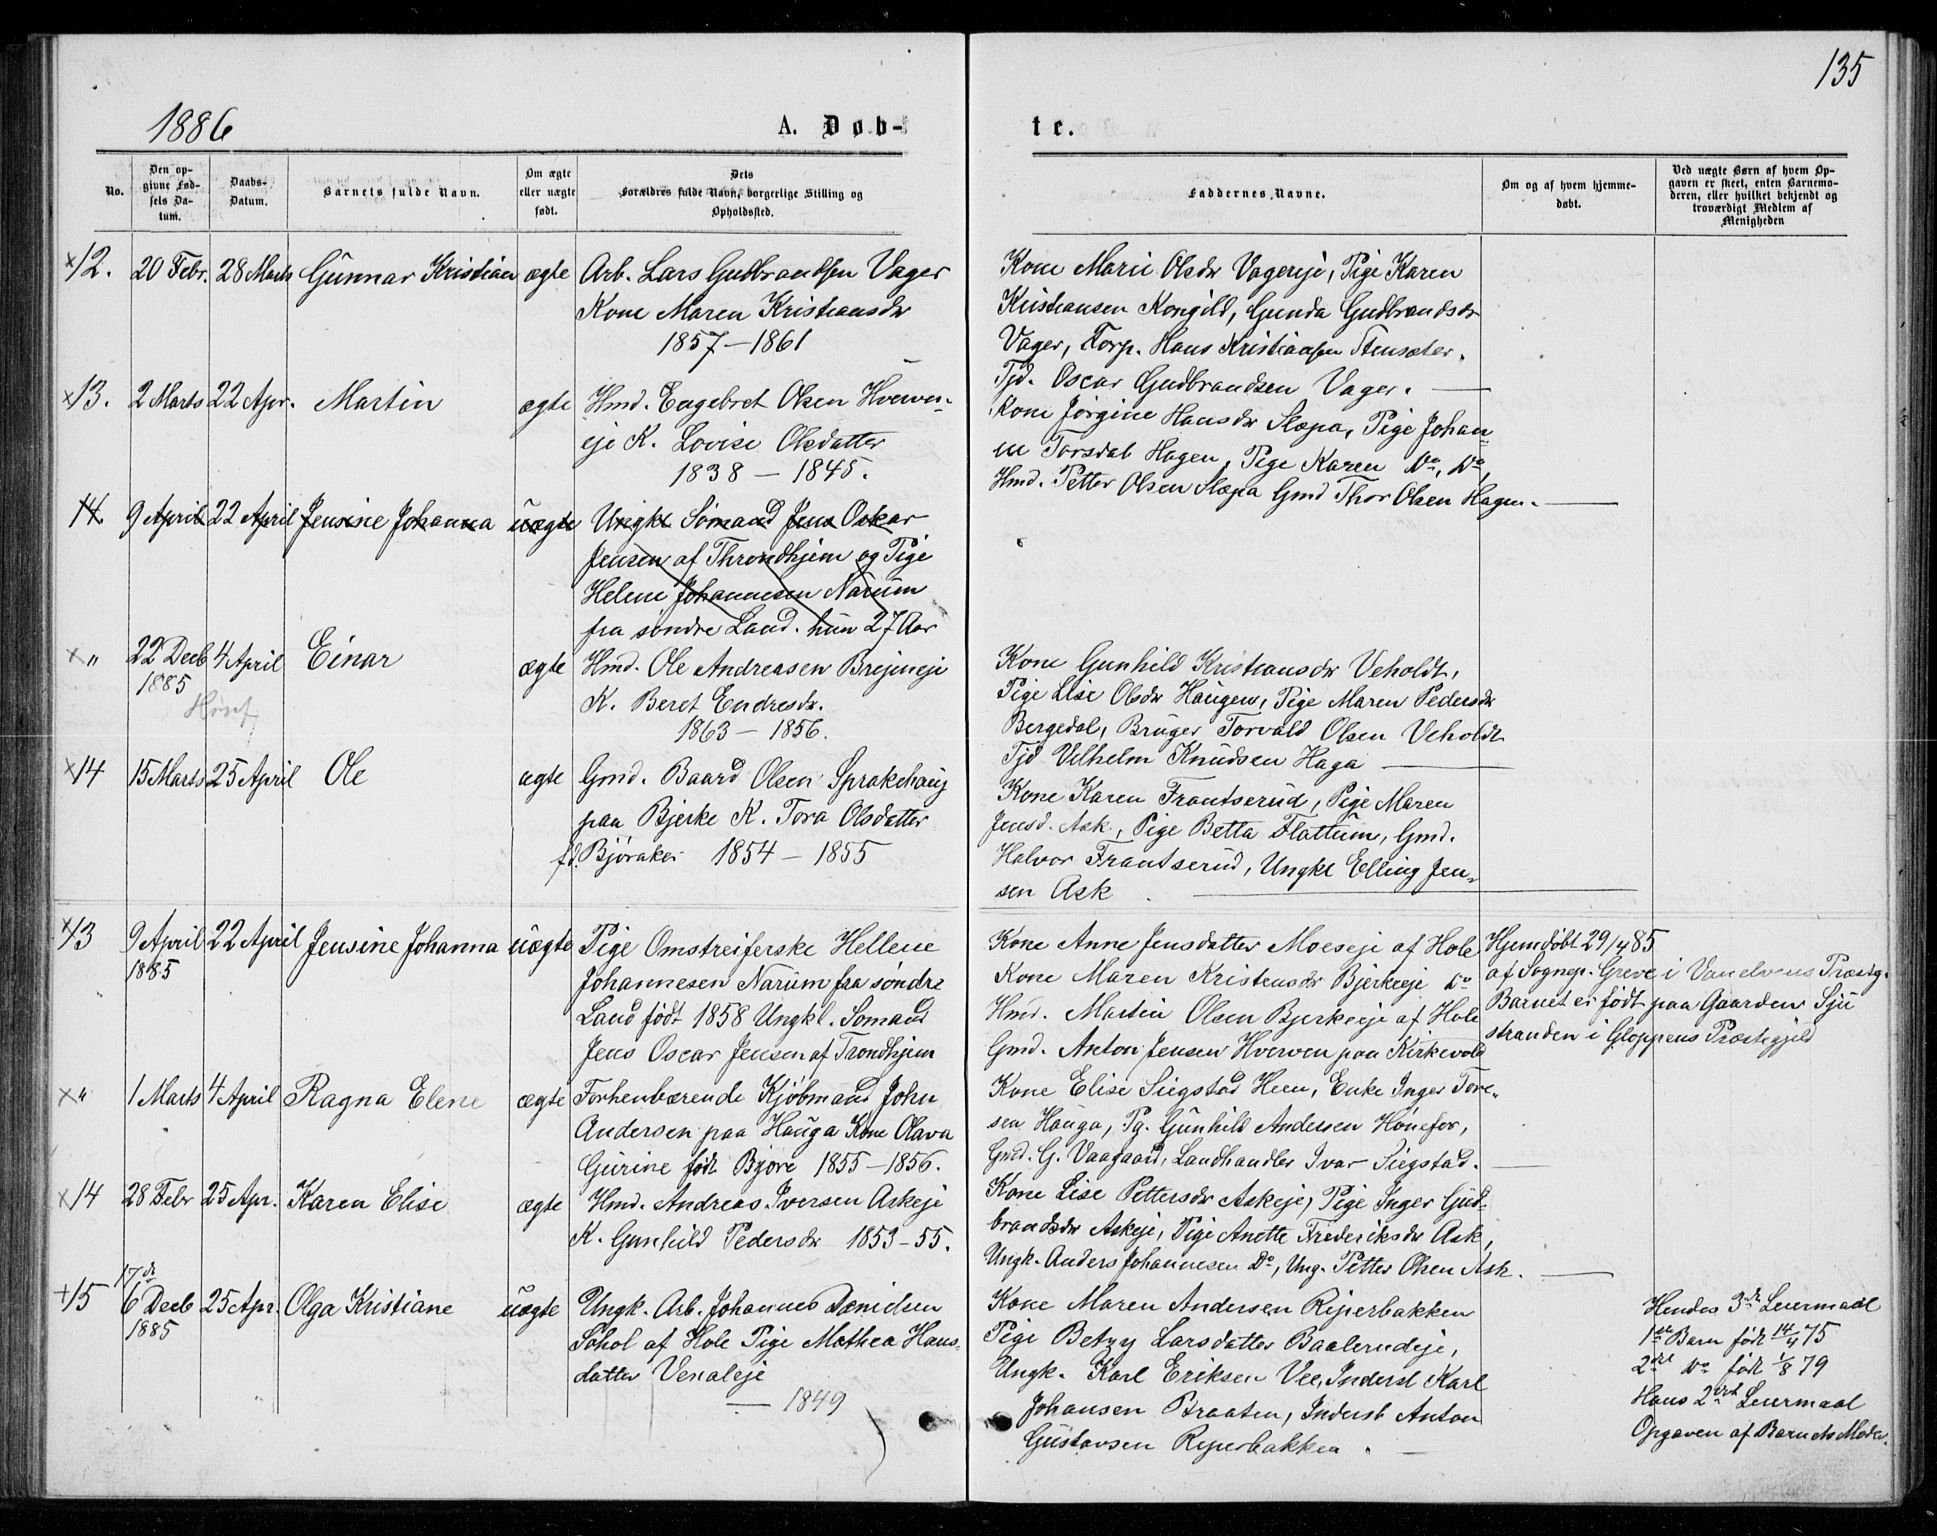 135
1886 A. Døb- te.
No. Den opgivne Fødsels Datum. Daabs-Datum. Barnets fulde Navn. Om ægte eller uægte født. Dets Forældres fulde Navn, borgerlige Stilling og Opholdssted. Faddernes Navne. Om og af hvem hjemmedøbt. Ved uægte Børn af hvem Opgaven er skeet, enten Barnemoderen, eller hvilket bekjendt og troværdigt Medlem af Menigheden
×12. 20 Febr. 28 Marts Gunnar Kristian ægte Arb. Lars Gudbrandsen Vager
Kone Maren Kristiansdr
1857 – 1861
Kone Marie Olsdr Vagereje, Pige Karen
Kristiansen Kongild, Gunda Gudbrandsdr
Vager, Forp. Hans Kristiansen Stensæter.
Tjd. Oscar Gudbrandsen Vager. —
×13. 2 Marts 22 Apr. Martin ægte Hmd. Engebret Olsen Hverven-
eje K. Lovise Olsdatter
1838 – 1845.
Kone Jørgine Hansdr Slæpa, Pige Johan-
ne Torsdal Hagen, Pige Karen Do, Do,
Hmd. Petter Olsen Slæpa Gmd Thor Olsen Hagen. —
14. 9 April 22 April Jensine Johanna uægte Ungkl Sømand Jens Oskar
Jensen af Throndhjem og Pige
Helene Johannesen Narum
fra søndre Land. hun 27 Aar
× " 22 Decb 4 April Einar ægte Hmd. Ole Andreasen Brejneje
1885
Hønef
K. Beret Endresdr.
1863 – 1856.
Kone Gunhild Kristiansdr Veholdt,
Pige Lise Olsdr Haugen, Pige Maren Pedersdr
Bergedal, Bruger Torvald Olsen Veholdt
Tjd Vilhelm Knudsen Haga —
×14 15 Marts 25 April Ole ægte Gmd. Baard Olsen Sprakehaug
paa Bjerke K. Tora Olsdatter
fd. Bjøraker 1854 – 1855
Kone Karen Frantserud, Pige Maren
Jensd. Ask, Pige Betta Flattum, Gmd.
Halvor Frantserud, Ungkl Elling Jen-
sen Ask. —
×13 9 April 22 April Jensine Johanna uægte Pige Omstreiferske Hellene
1885
Johannesen Narum fra søndre
Land født 1858 Ungkl. Sømand
Jens Oscar Jensen af Trondhjem
Kone Anne Jensdatter Moeseje af Hole
Kone Maren Kristensdr Bjerkeeje Do
Hmd. Martin Olsen Bjerkeeje af Hole
Gmd. Anton Jensen Hverven paa Kirkevold
Hjemdøbt 29/4 85
af Sognep. Greve i Vanelvens Præstg.
Barnet er født paa Gaarden Sju
stranden i Gloppens Præstegjeld
× " 1 Marts 4 April Ragna Elene ægte Forhenværende Kjøbmand John
Andersen paa Hauga Kone Olava
Gurine født Bjøre 1855 – 1856.
Kone Elise Siegstad Heen, Enke Inger Tore-
sen Hauga, Pg. Gunhild Andersen Hønefos,
Gmd. G. Vaagaard, Landhandler Ivar Siegstad. —
×14 28 Febr 25 Apr. Karen Elise ægte Hmd. Andreas Iversen Askeje
K. Gunhild Pedersdr 1853 – 55.
Kone Lise Pettersdr Askeje, Pige Inger Gud-
brandsdr Askeje, Pige Anette Frederiksdr Ask,
Ungk. Anders Johannesen Do, Ung. Petter Olsen Ask. —
17de
×15 6 Decb 25 Apr. Olga Kristiane uægte Ungk. Arb. Johannes Danielsen
1885
Søhol af Hole Pige Mathea Hans-
datter Venaleje
— 1849
Kone Maren Andersen Riperbakken
Pige Betzy Larsdatter Baalerudeje,
Ungk. Karl Eriksen Vee, Inderst Karl
Johansen Braaten, Inderst Anton
Gustavsen Riperbakken. —
Hendes 3die Leiermaal
1ste Barn født 14/4 75
2det Do født 1/8 79
Hans 2det Leiermaal
Opgaven af Barnets Moder.